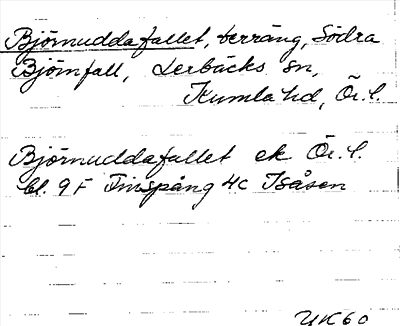 Björnuddafallet, terräng, Södra
Björnfall, Lerbäcks sn,
Kumla hd, Ör. l.
Björnuddafallet ek Ör. l.
bl. 9 F Finspång 4c Isåsen
UK60